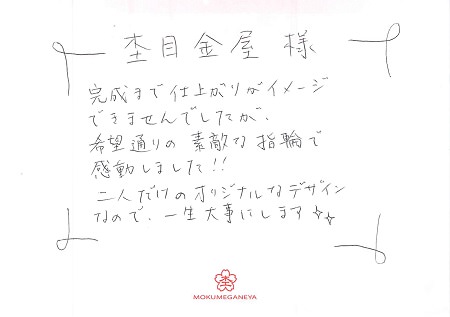 杢目金屋 様
完成まで仕上がりがイメージ
できませんでしたが、
希望通りの素敵な指輪で
感動しました!!
二人だけのオリジナルなデザイン
なので、一生大事にします
杢
MOKUMEGANEYA